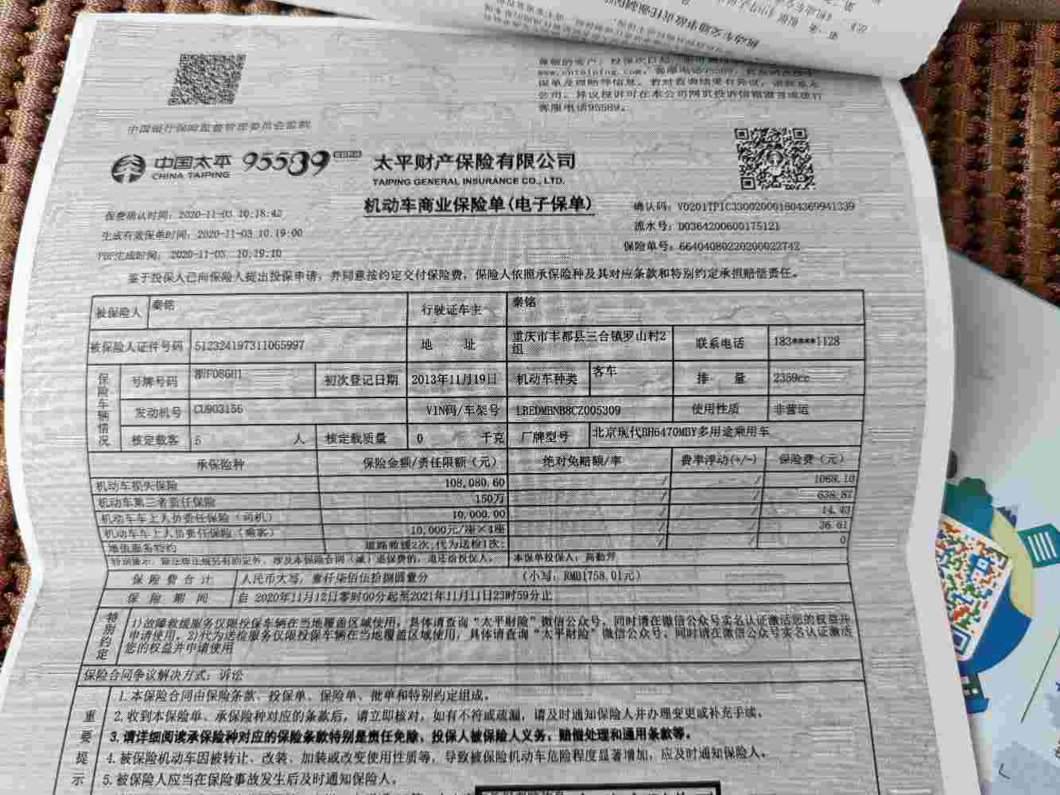 机动车交通事故责任强制保险
www.cntaiping.com
保单及理赔等信息。若对查询结果有异议，请联系本
公司。异议投诉可在本公司网页投诉信箱留言或拨打
客服电话95589。
中国银行保险监督管理委员会监制
中国太平 95589
CHINA TAIPING
太平财产保险有限公司
TAIPING GENERAL INSURANCE CO., LTD.
机动车商业保险单(电子保单)
保费确认时间：2020-11-03 10:18:42
生成有效保单时间：2020-11-03 10:19:00
PDF生成时间：2020-11-03 10:19:10
确认码：V0201TPIC330020001604369941339
流水号：D0364200600175121
保险单号：66404080220200022742
鉴于投保人已向保险人提出投保申请，并同意按约定交付保险费，保险人依照承保险种及其对应条款和特别约定承担赔偿责任。
被保险人 秦铭 行驶证车主 秦铭
被保险人证件号码 512324197311065997 地 址 重庆市丰都县三合镇罗山村2组 联系电话 183****1128
保险车辆情况
号牌号码 初次登记日期 2013年11月19日 机动车种类 客车 排 量 2359cc
发动机号 CU903156 VIN码/车架号 LBEDMBNB8CZ005309 使用性质 非营运
核定载客 5 人 核定载质量 0 千克 厂牌型号 北京现代BH6470MBY多用途乘用车
承保险种 保险金额/责任限额（元） 绝对免赔额/率 费率浮动(+/-) 保险费（元）
机动车损失保险 108,080.60 / / 1068.10
机动车第三者责任保险 150万 / / 638.87
机动车车上人员责任保险（司机） 10,000.00 / / 14.43
机动车车上人员责任保险（乘客） 10,000元/座×4座 / / 36.61
增值服务特约 道路救援2次;代为送检1次; / / 0
本保单投保人：
保 险 费 合 计 人民币大写：壹仟柒佰伍拾捌圆壹分 （小写：RMB1758.01元）
保 险 期 间 自 2020年11月12日零时00分起至2021年11月11日23时59分止
特别约定
1)故障救援服务仅限投保车辆在当地覆盖区域使用，具体请查询“太平财险”微信公众号，同时请在微信公众号实名认证激活您的权益并
申请使用，2)代为送检服务仅限投保车辆在当地覆盖区域使用，具体请查询“太平财险”微信公众号，同时请在微信公众号实名认证激活
您的权益并申请使用
保险合同争议解决方式：诉讼
重要提示
1.本保险合同由保险条款、投保单、保险单、批单和特别约定组成。
2.收到本保险单、承保险种对应的条款后，请立即核对，如有不符或疏漏，请及时通知保险人并办理变更或补充手续。
3.请详细阅读承保险种对应的保险条款特别是责任免除、投保人被保险人义务、赔偿处理和通用条款等。
4.被保险机动车因被转让、改装、加装或改变使用性质等，导致被保险机动车危险程度显著增加，应及时通知保险人。
5.被保险人应当在保险事故发生后及时通知保险人。